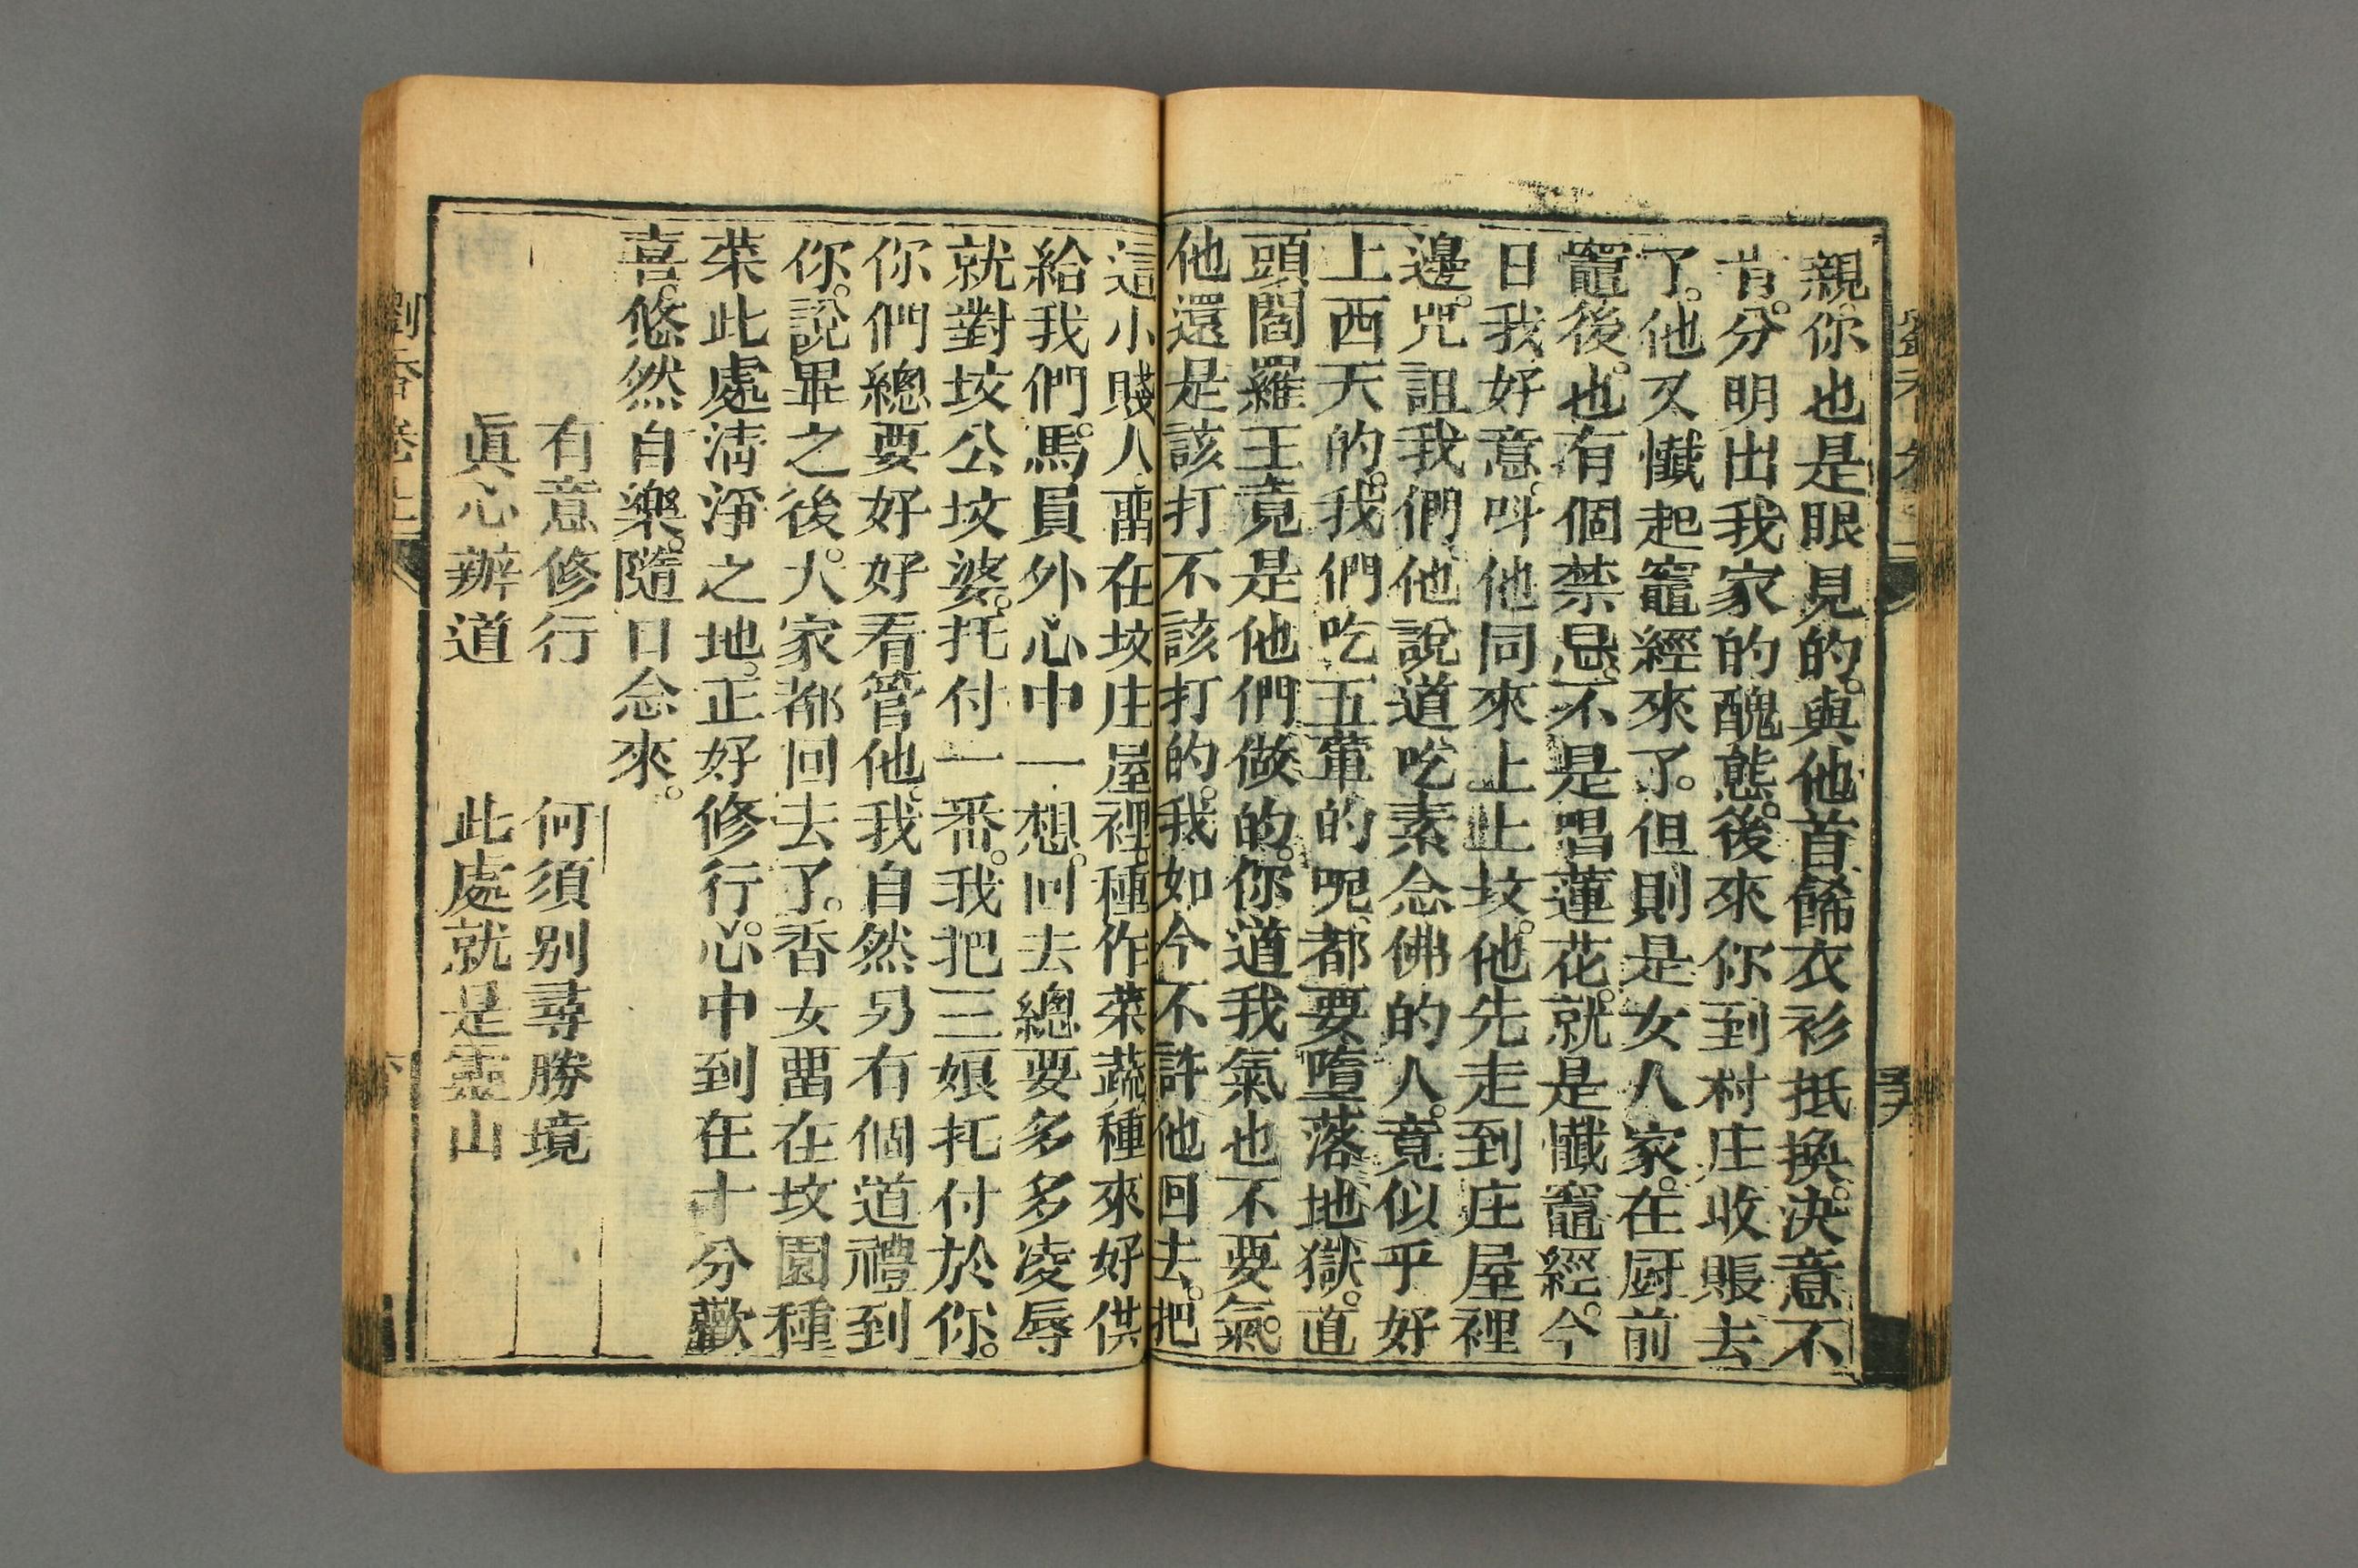 親。你也是眼見的。與他首餙衣衫抵換。決意不
肯。分明出我家的醜態。後來你到村庄收賬去
了。他又懺起竈經來了。但則是女人家。在厨前
竈後。也有個禁忌。不是唱蓮花。就是懺竈經。今
日我好意。呌他同來上上坟。他先走到庄屋裡
邊。咒詛我們他說道吃素念佛的人。竟似乎好
上西天的。我們吃五葷的呢。都要墮落地獄。直
頭閻羅王竟是他們做的。你道我氣也不要氣。
他還是該打不該打的。我如今不許他回去。把
這小賤人畱在坟庄屋裡。種作菜蔬種來好供
給我們。馬員外心中一想。回去總要多多凌辱
就對坟公坟婆。托付一番。我把三娘托付於你。
你們總要好好看管他。我自然另有個道禮到
你。說畢之後。大家都回去了。香女畱在坟園種
菜此處淸淨之地。正好修行。心中到在十分歡
喜。悠然自樂。隨口念來。
有意修行　何須别尋勝境
眞心辦道　此處就是靈山
劉香卷上